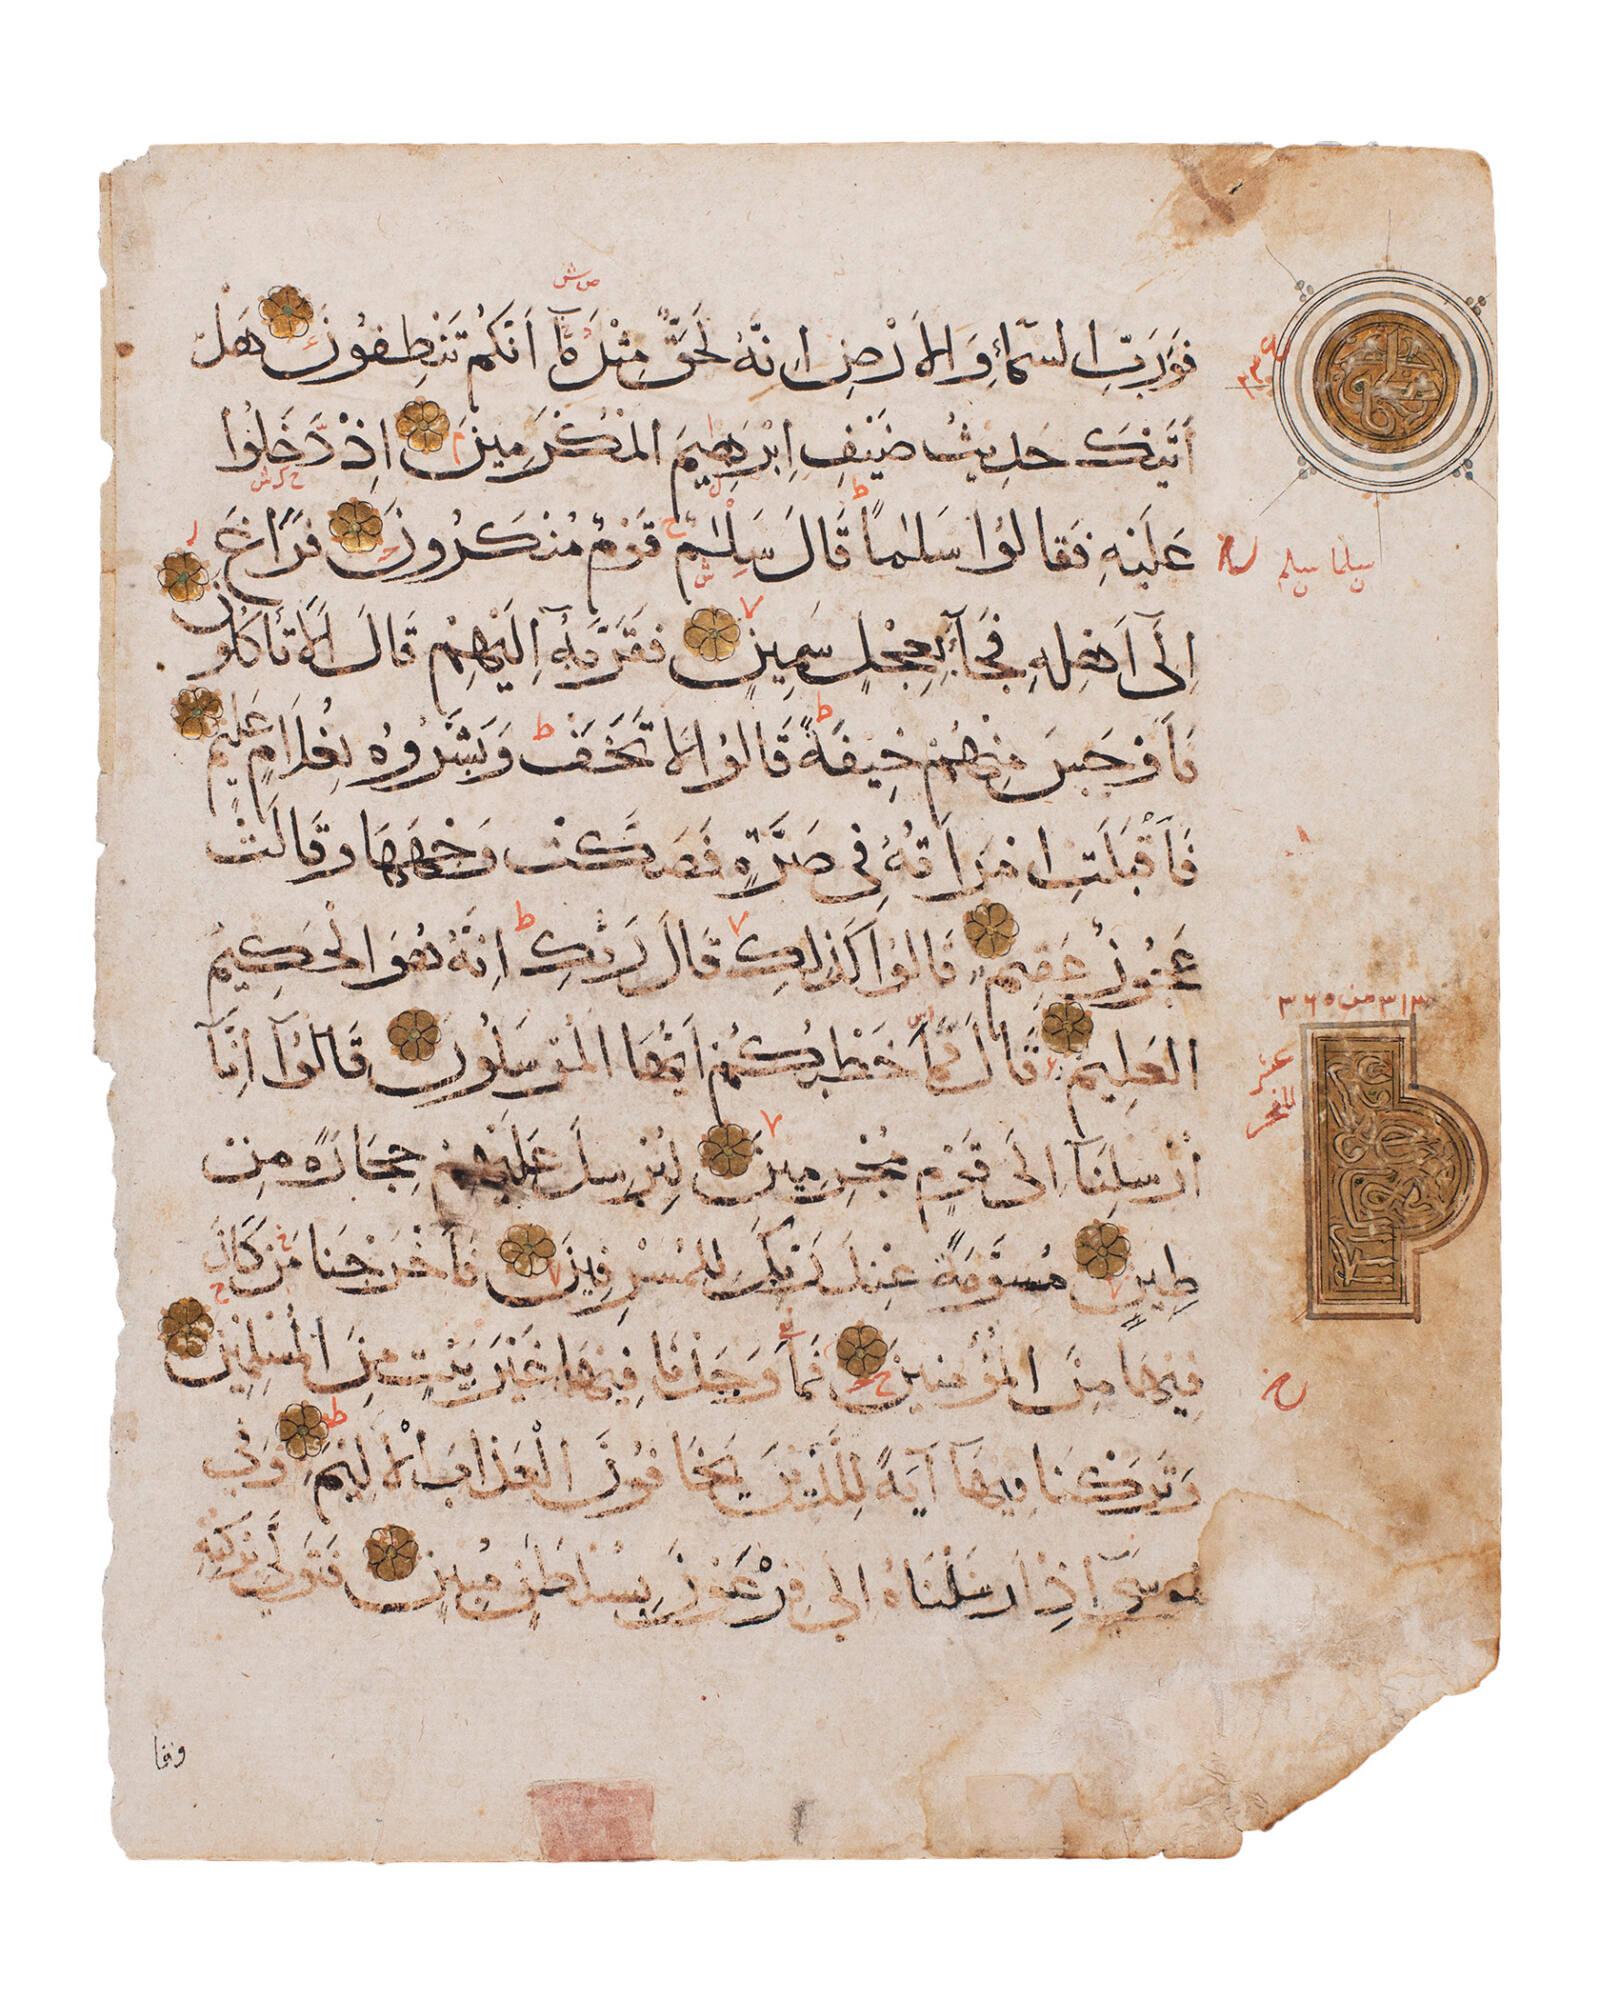 فَوَرَبِّ السَّمَآءِ وَالْاَرْضِ اِنَّهُ لَحَقٌّ مِثْلَ مَآ اَنَّكُمْ تَنْطِقُونَ هَلْ
اَتَيٰكَ حَدِيثُ ضَيْفِ اِبْرٰهِيمَ الْمُكْرَمِينَ اِذْ دَّخَلُوْا
عَلَيْهِ فَقَالُوْا سَلٰمًا قَالَ سَلٰمٌ قَوْمٌ مُنْكَرُونَ فَرَاغَ
اِلَىٓ اَهْلِهِ فَجَآءَ بِعِجْلٍ سَمِينٍ فَقَرَّبَهُٓ اِلَيْهِمْ قَالَ اَلَا تَاْكُلُونَ
فَاَوْجَسَ مِنْهُمْ خِيفَةً قَالُوْا لَا تَخَفْ وَبَشَّرُوهُ بِغُلَامٍ عَلِيمٍ
فَاَقْبَلَتِ امْرَاَتُهُ فِى صَرَّةٍ فَصَكَّتْ وَجْهَهَا وَقَالَتْ
عَجُوزٌ عَقِيمٌ قَالُوْا كَذٰلِكِ قَالَ رَبُّكِ اِنَّهُ هُوَ الْحَكِيمُ
الْعَلِيمُ قَالَ فَمَا خَطْبُكُمْ اَيُّهَا الْمُرْسَلُونَ قَالُوْٓا اِنَّآ
اُرْسِلْنَآ اِلَى قَوْمٍ مُجْرِمِينَ لِنُرْسِلَ عَلَيْهِمْ حِجَارَةً مِنْ
طِينٍ مُسَوَّمَةً عِنْدَ رَبِّكَ لِلْمُسْرِفِينَ فَاَخْرَجْنَا مَنْ كَانَ
فِيهَا مِنَ الْمُؤْمِنِينَ فَمَا وَجَدْنَا فِيهَا غَيْرَ بَيْتٍ مِنَ الْمُسْلِمِينَ
وَتَرَكْنَا فِيهَآ آيَةً لِلَّذِينَ يَخَافُونَ الْعَذَابَ الْاَلِيمَ وَفِى
مُوسَىٓ اِذْ اَرْسَلْنَاهُ اِلَى فِرْعَوْنَ بِسُلْطٰنٍ مُبِينٍ فَتَوَلَّى بِرُكْنِهِ
سلما سلم
٣١٣ من ٣٦٥
عشر